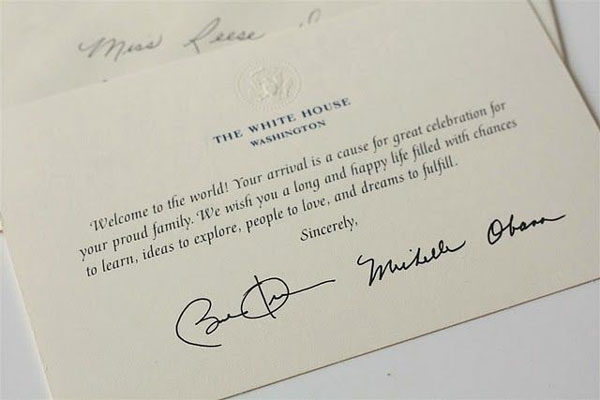 Miss Reese
THE WHITE HOUSE
WASHINGTON
Welcome to the world! Your arrival is a cause for great celebration for
your proud family. We wish you a long and happy life filled with chances
to learn, ideas to explore, people to love, and dreams to fulfill.
Sincerely,
Michelle Obama